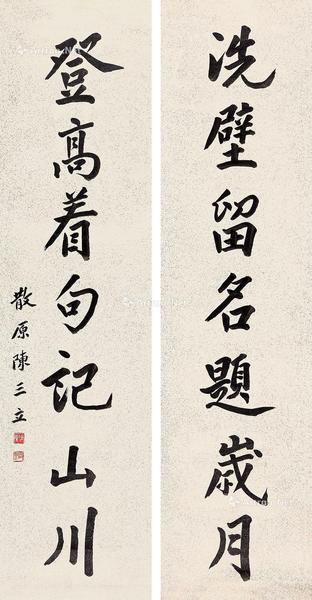 洗壁留名題歲月
登高着句記山川
散原陳三立